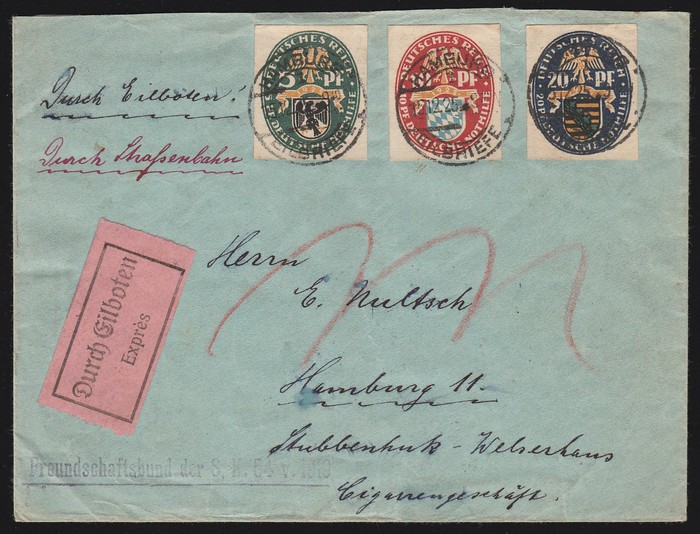 DEUTSCHES REICH
5 PF
5 PF DEUTSCHE NOTHILFE
DEUTSCHES REICH
PF
DEUTSCHE NOTHILFE
DEUTSCHES REICH
20 PF
DEUTSCHE NOTHILFE
HAMBURG
EILBRIEFE
HAMBURG
EILBRIEFE
Durch Eilboten!
Durch Straßenbahn
Durch Eilboten
Exprès
Herrn
E. Nultsch
Hamburg 11.
Stubbenhuk - Welserhaus
Cigarrengeschäft.
Freundschaftsbund der S.